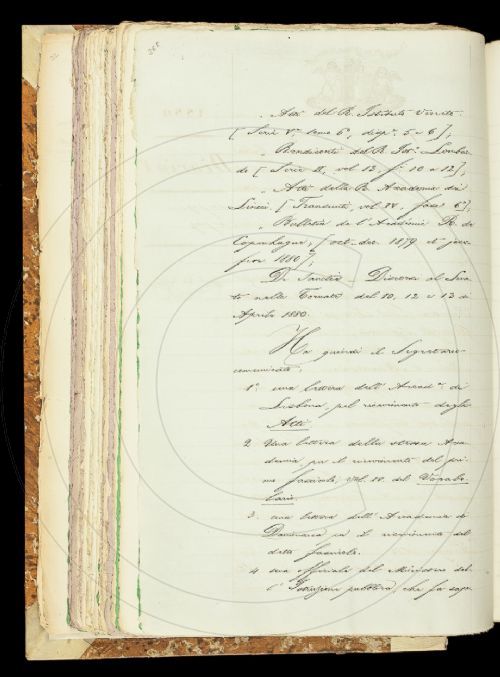 „ Atti del R. Istituto Veneto
[Serie V.ª tomo 6°, disp.ª 5 e 6];
„ Rendiconti del R. Ist.º Lombar-
do [Serie II, vol 12, f.i 10 e 12];
„ Atti della R. Accademia dei
Lincei. [Transunti, vol. IV, fasc. 6°];
„ Bulletin de l'Académie R. de
Copenhague, [oct-dec. 1879 et janv
fior 1880];
De Sanctis Discorsi al Sena-
to nelle Tornate del 10, 12 e 13 di
Aprile 1880.
Ha quindi il Segretario
comunicato:
1.° una lettera dell'Accad.ª di
Lisbona, pel ricevimento degli
Atti
2 Una lettera della stessa Acca-
demia, per il ricevimento del pri-
mo fascicolo, vol. IV. del
3. una lettera dell'Accademia di
Danimarca per il ricevimento del
detto fascicolo.
4 una officiale del Ministero del-
l'Istruzione pubblica, che fa sape-